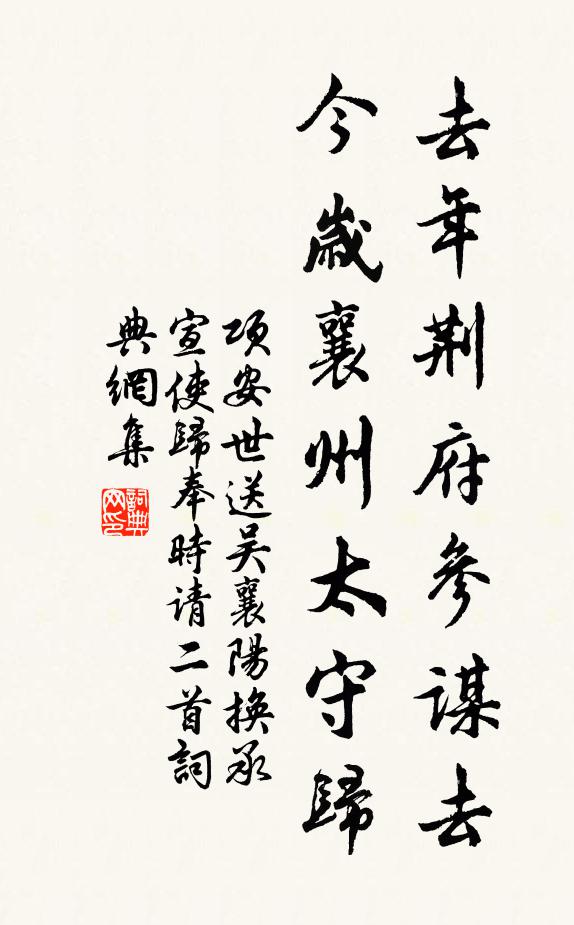 去年荆府參謀去
今歲襄州太守歸
项安世送吴襄陽換承
宣使歸奉時请二首詞
典網集
詞典
网印